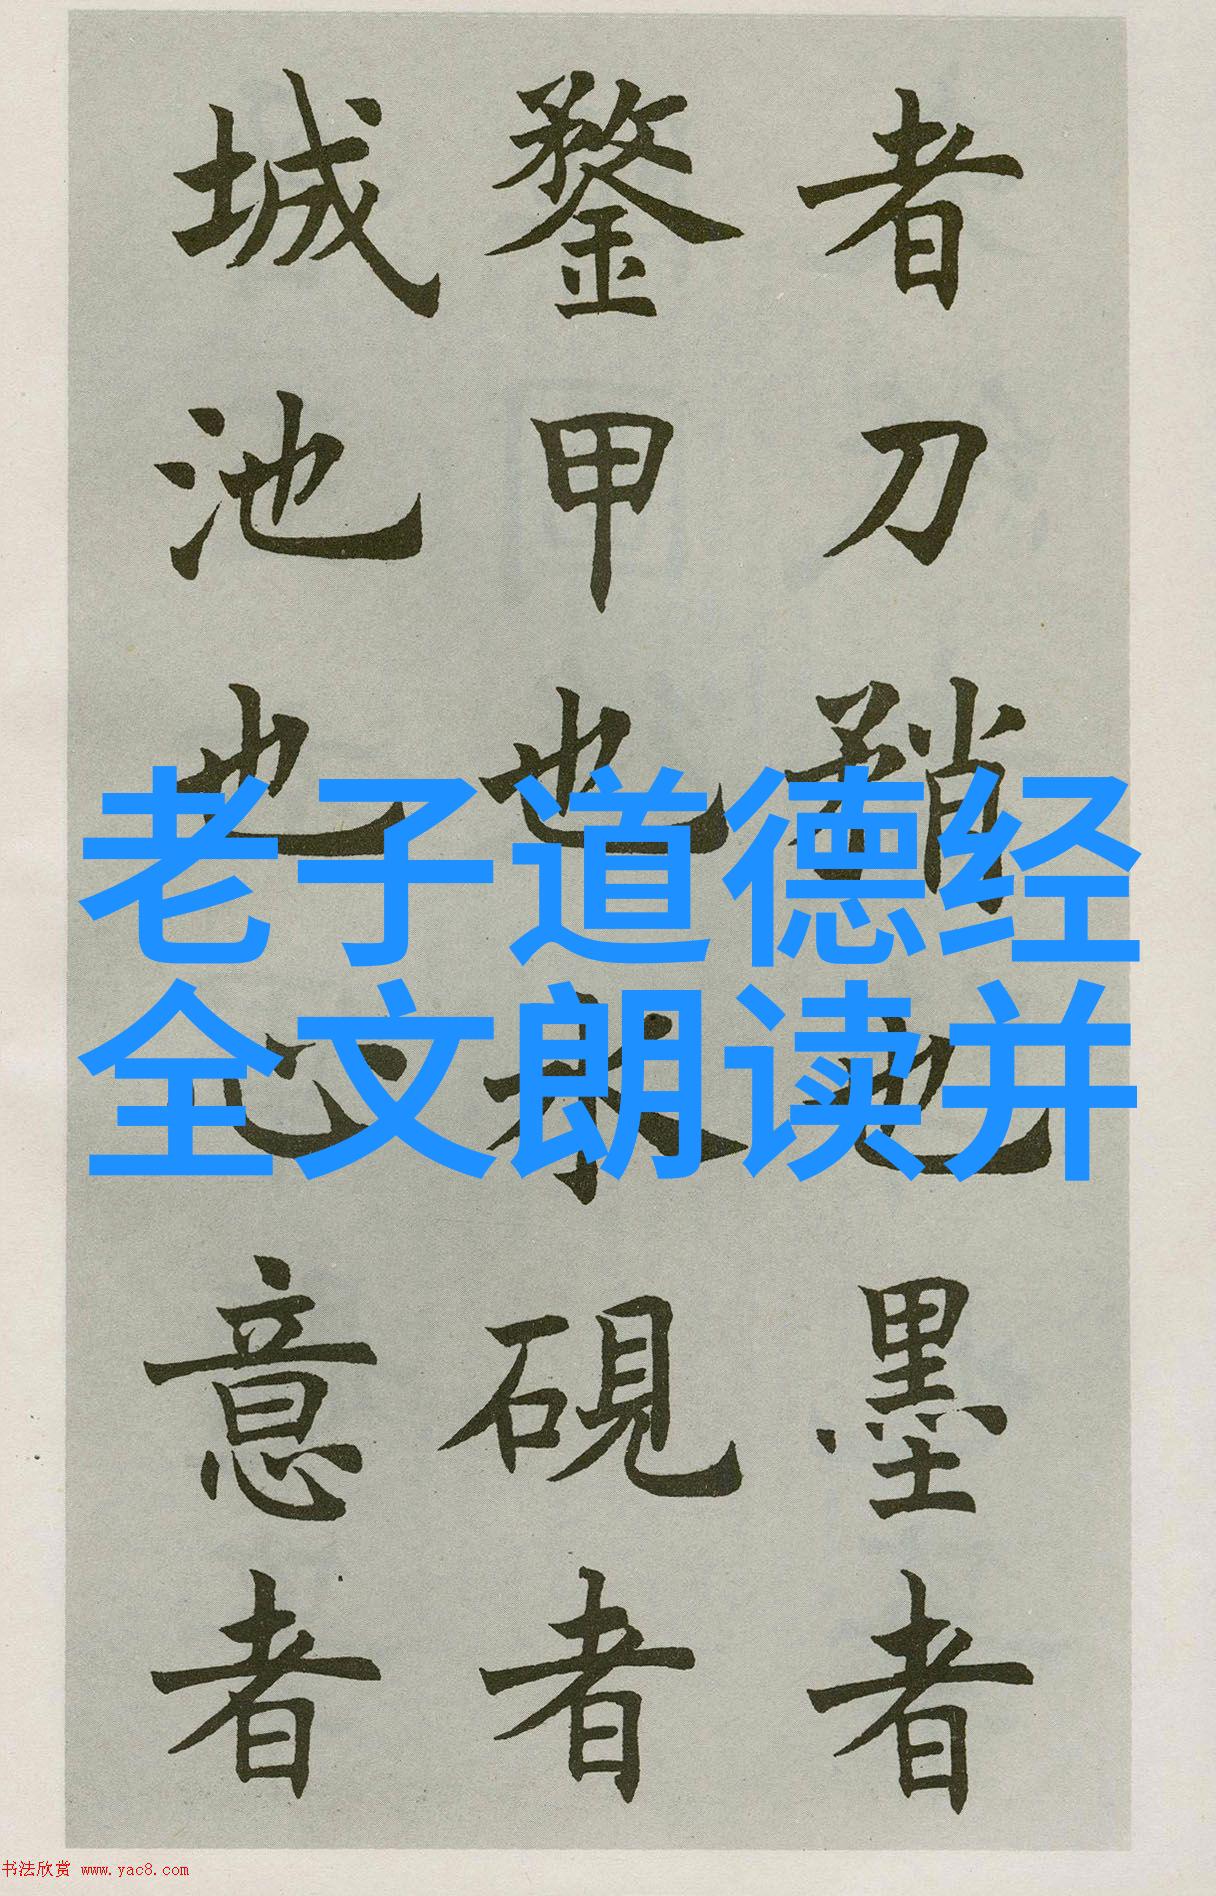 者刀矟也墨者
鍪甲也水硯者
城池也心意者
老子道德经
全文朗读并
书法欣赏 www.yac8.com